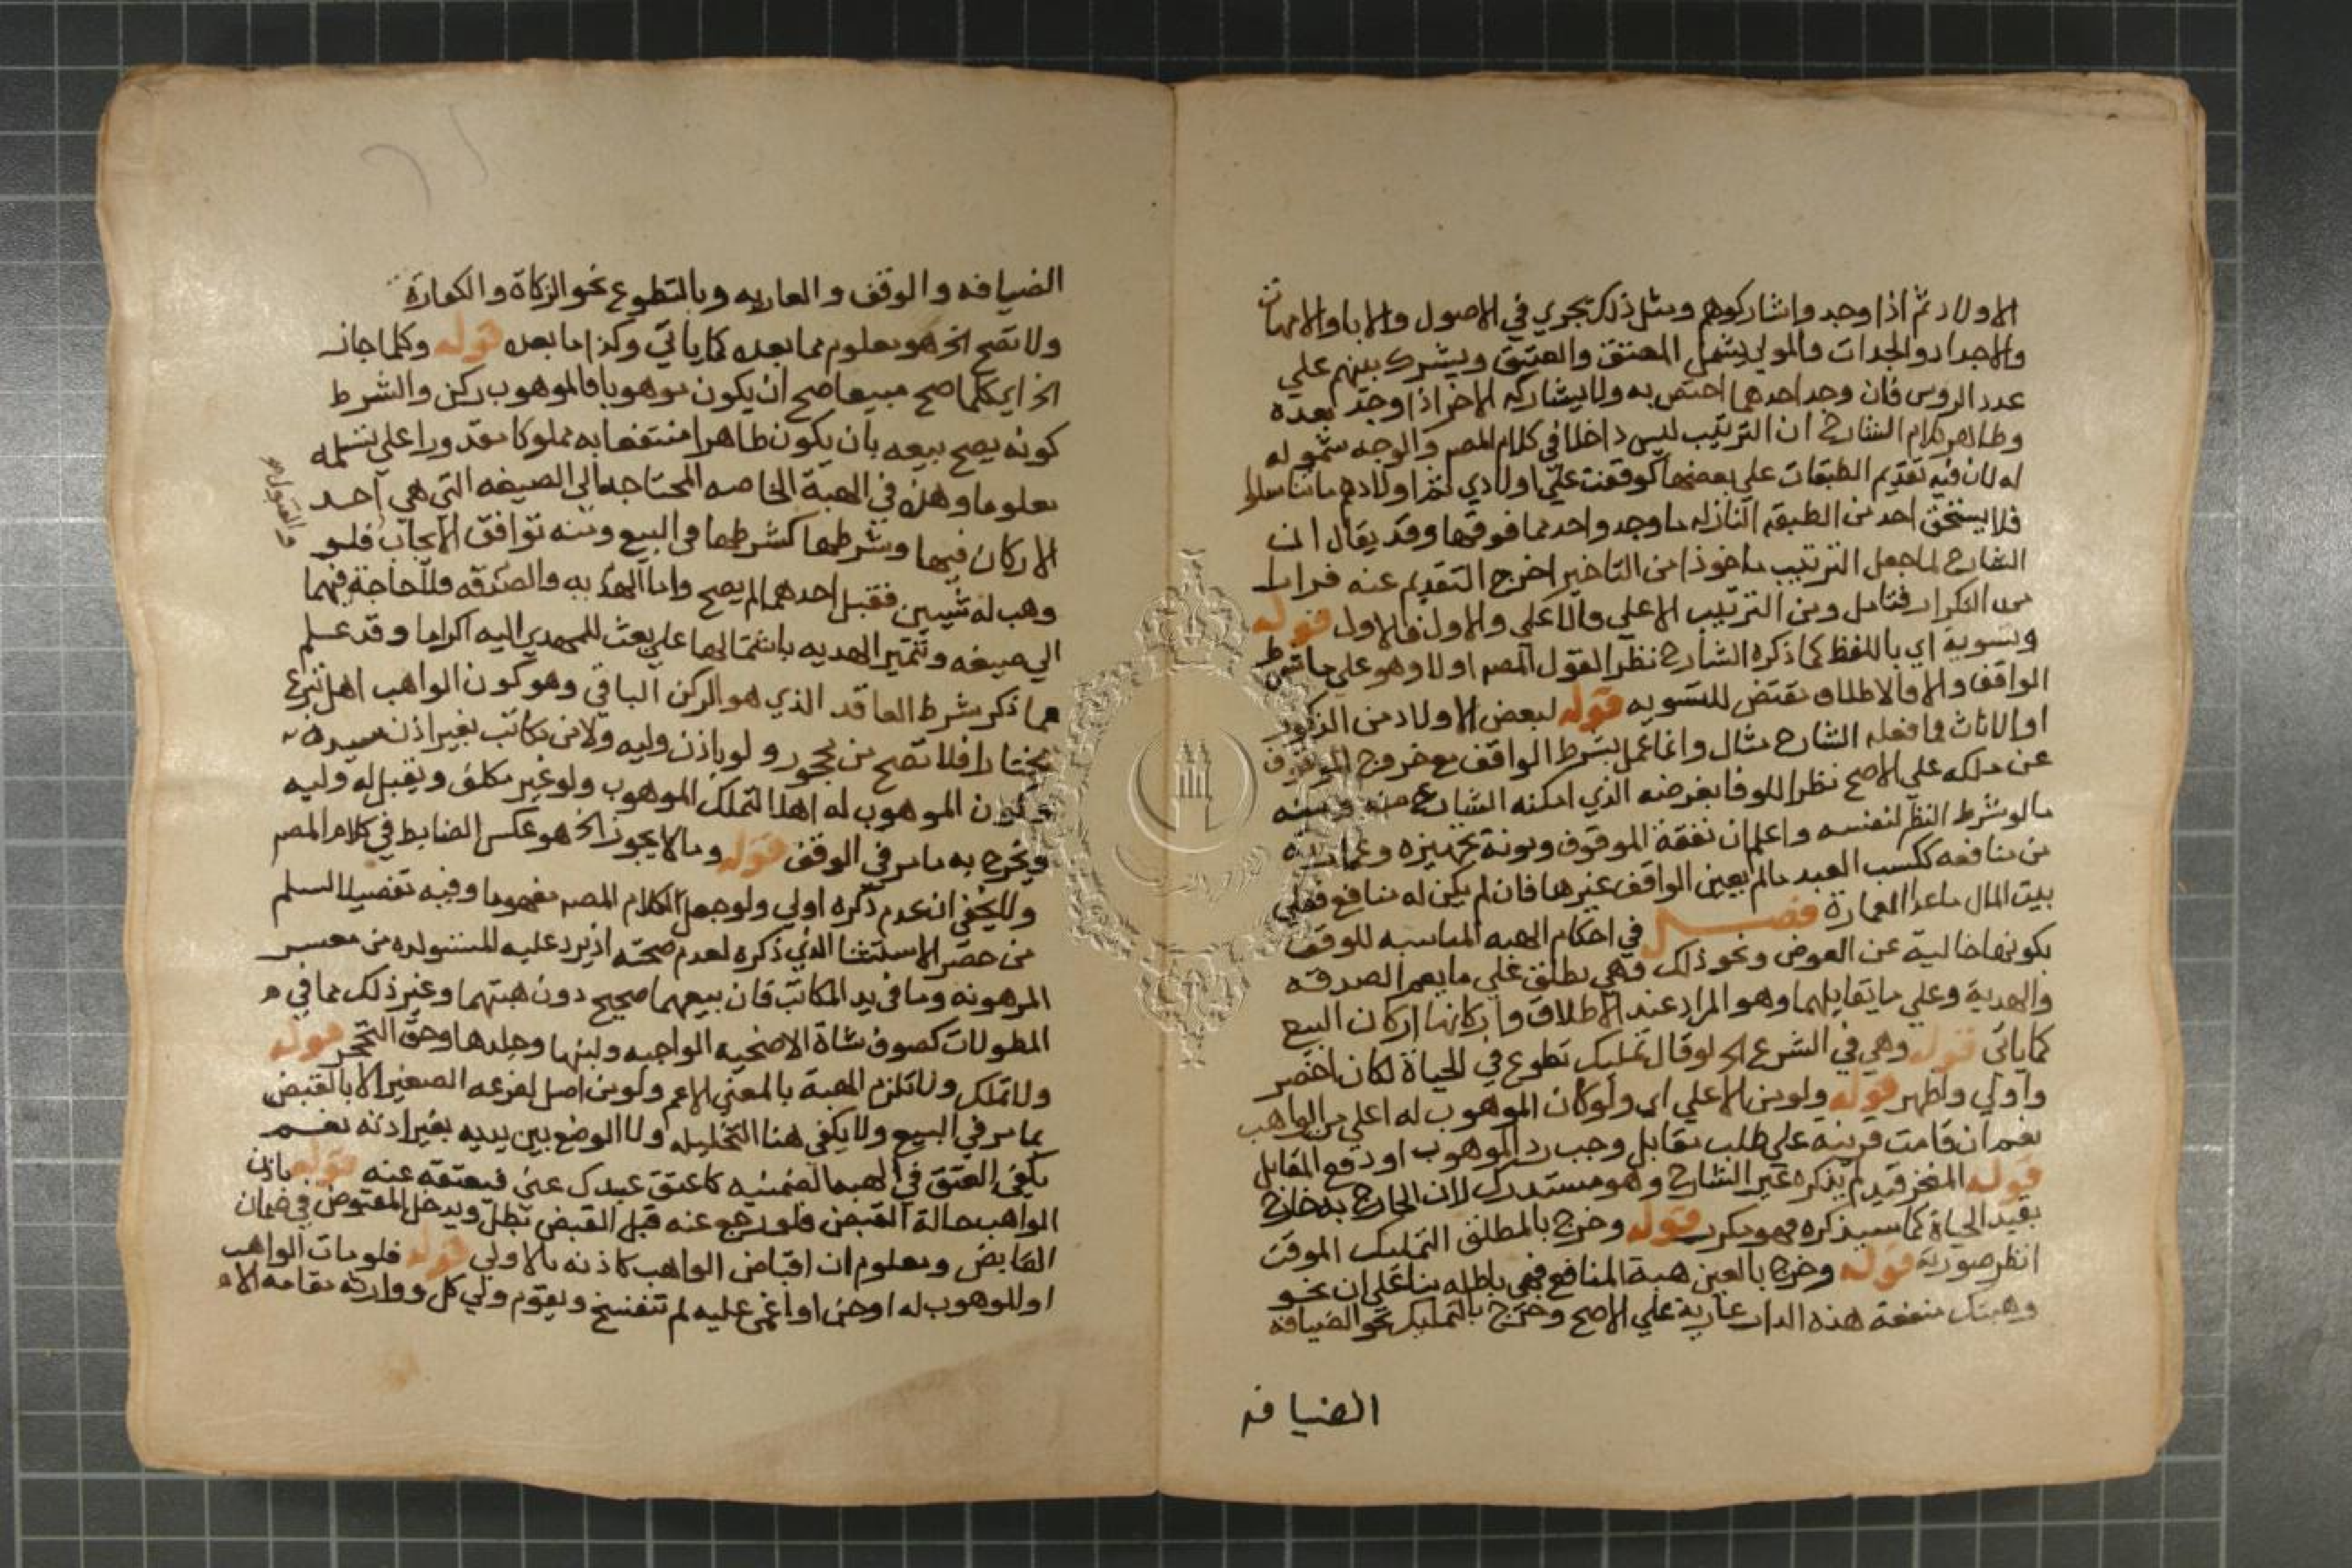 الاولاد ثم اذا وجدوا شاركوهم ومثل ذلك يجري في الاصول والابا والامهات
والاجداد والجدات والمولي يشمل المعتق والعتيق ويشرك بينهم علي
عدد الروس فان وجد احدهما اختص به ولا يشاركه الاخر اذا وجد بعده
وظاهر كلام الشارح ان الترتيب ليس داخلا في كلام المصر والوجه شموله
له لان فيه تقديم الطبقات علي بعضها كوقفت علي اولادي ثم اولادهم ما تناسلوا
فلا يستحق احد من الطبقه النازله ما وجد واحد مما فوقها وقد يقال ان
الشارح لما جعل الترتيب ماخوذا من التاخير اخرج التقديم عنه فرارا
من التكرار فتامل ومن الترتيب الاعلي فالاعلي والاول فالاول قوله
وتسوية اي باللفظ كما ذكره الشارح نظرا لقول المصر اولا وهو علي ما شرط
الواقف والا فالاطلاق مقتض للتسويه قوله لبعض الاولاد من الذكور
او الاناث فما فعله الشارح مثال وانما عمل بشرط الواقف مع خروج الموقوف
عن ملكه علي الاصح نظرا للوفا بغرضه الذي امكنه الشارع منه ومنه
ما لو شرط النظر لنفسه واعلم ان نفقة الموقوف ومونة تجهيزه وعمارته
من منافعه ككسب العبد مالم يعين الواقف غيرها فان لم يكن له منافع ففي
بيت المال ما عدا العمارة فصل في احكام الهبه المناسبه للوقف
بكونها خالية عن العوض ونحو ذلك وهي تطلق علي ما يعم الصدقه
والهدية وعلي ما يقابلهما وهو المراد عند الاطلاق واركانها اركان البيع
كما ياتي قوله وهي في الشرع الخ لو قال تمليك تطوع في الحياة لكان اخصر
واولي واظهر قوله ولو من الاعلي اي ولو كان الموهوب له اعلي من الواهب
نعم ان قامت قرينة علي طلب مقابل وجب رد الموهوب او دفع المقابل
قوله المنجز قيد لم يذكره غير الشارح وهو مستدرك لان الخارج به خارج
بقيد الحياة كما سيذكره فهو مكرر قوله وخرج بالمطلق التمليك الموقت
انظر صورته قوله وخرج بالعين هبة المنافع فهي باطله بنا علي ان نحو
وهبتك منفعة هذه الدار عارية علي الاصح وخرج بالتمليك نحو الضيافه
الضيافه
الضيافه والوقف والعاريه وبالتطوع نحو الزكاة والكفارة
ولا تصح الخ هو معلوم مما بعده كما ياتي وكذا ما بعده قوله وكلما جاز
الخ اي كلما صح مبيعا صح ان يكون موهوبا فالموهوب ركن والشرط
كونه يصح بيعه بان يكون طاهرا منتفعا به مملوكا مقدورا علي تسلمه
معلوما وهذا في الهبة الخاصه المحتاجه الي الصيغه التي هي احد
الاركان فيها وشرطها كشرطها في البيع ومنه توافق الايجاب فلو
والقبول صح
وهب له شيين فقبل احدهما لم يصح واما الهديه والصدقه فلا حاجة فيهما
الي صيغه وتتميز الهديه باشتمالها علي بعث للمهدي اليه اكراما وقد علم
مما ذكر شرط العاقد الذي هو الركن الباقي وهو كون الواهب اهل تبرع
مختارا فلا تصح من محجور ولو باذن وليه ولا من مكاتب بغير اذن سيده
وكون الموهوب له اهلا لتملك الموهوب ولو غير مكلف ويقبل له وليه
ويخرج به ما مر في الوقف قوله وما لا يجوز الخ هو عكس الضابط في كلام المصر
ولا يخفي ان عدم ذكره اولي ولو جعل الكلام المصر مفهوما وفيه تفصيلا لسلم
من حصر الاستثنا الذي ذكره لعدم صحته اذ يرد عليه المستولده من معسر
المرهونه وما في يد المكاتب فان بيعهما صحيح دون هبتهما وغير ذلك مما في
المطولات كصوف شاة الاضحيه الواجبه ولبنها وجلدها وحق التحجر قوله
ولا تملك ولا تلزم الهبة بالمعني الاعم ولو من اصل لفرعه الصغير الا بالقبض
بما مر في البيع ولا يكفي هنا التخليه ولا الوضع بين يديه بغير اذنه نعم
يكفي العتق في الهبه الضمنيه كاعتق عبدك عني فيعتقه عنه قوله باذن
الواهب حالة القبض فلو رجع عنه قبل القبض بطل ويدخل المقبوض في ضمان
القابض ومعلوم ان اقباض الواهب كاذنه بالاولي قوله فلو مات الواهب
او الموهوب له او جن او اغمي عليه لم تنفسخ ويقوم ولي كل ووارثه مقامه الا